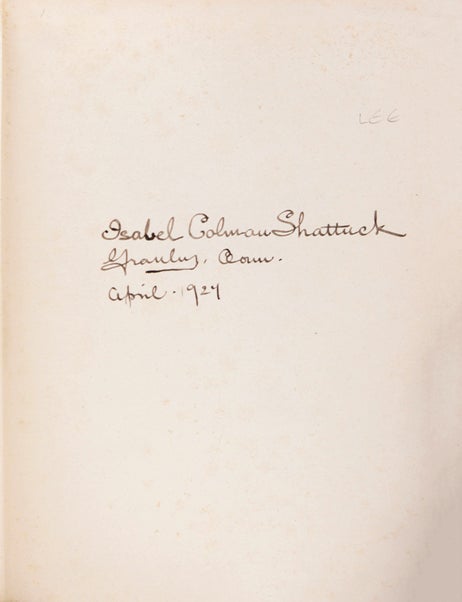 LEE
Isabel Colman Shattuck
Granby, Conn.
April. 1927